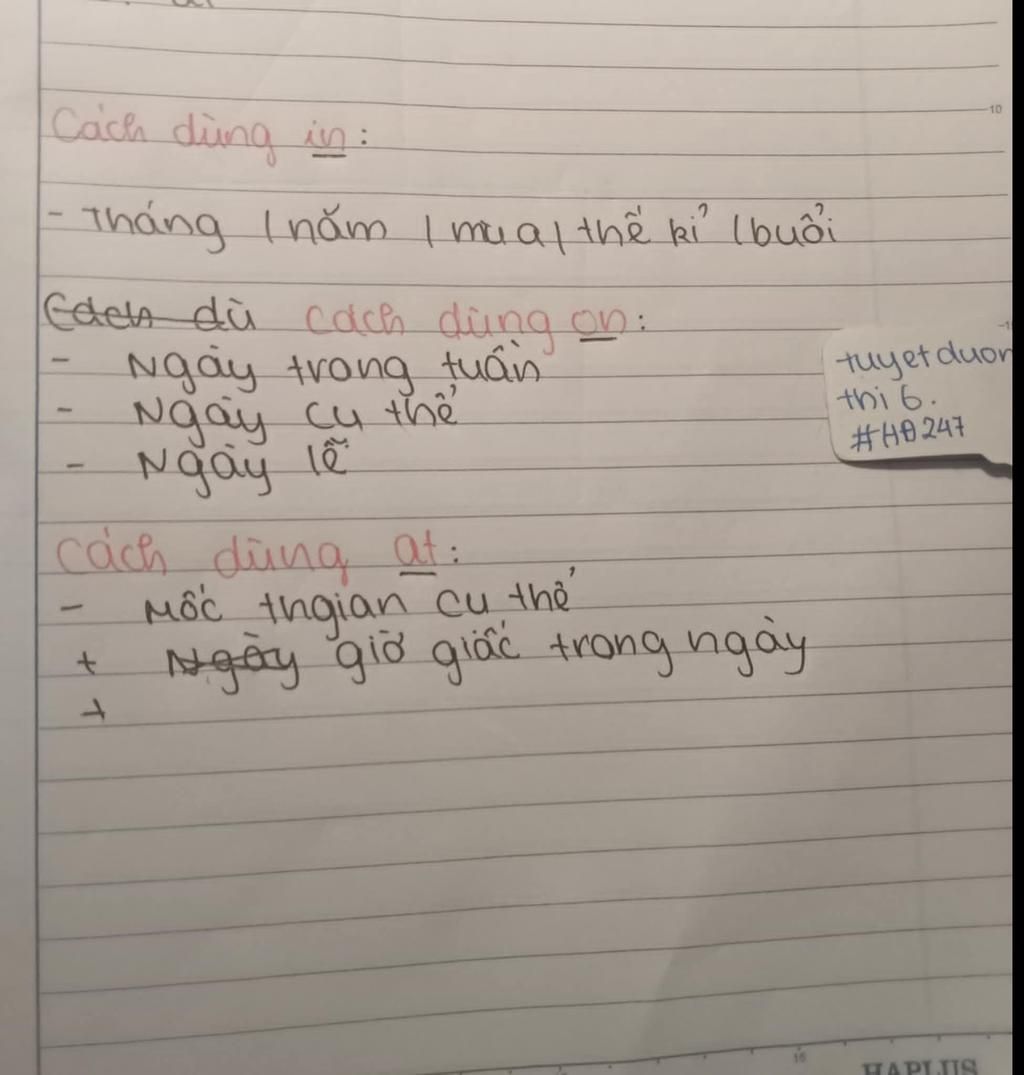 10
Cách dùng in:
- Tháng / năm / mua / thế kỉ / buổi
Cách dù cách dùng on:
- Ngày trong tuần
- Ngày cu thể
- Ngày lễ
tuyetduon
thi 6.
#HĐ247
Cách dùng at:
- Mốc tngian cu thể
+ Ngày giờ giấc trong ngày
+
16
HAPLUS